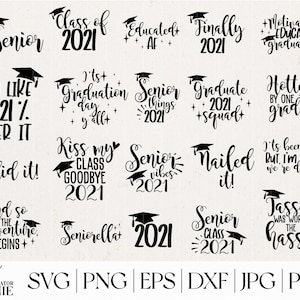 Senior
Class of
2021
Educated
AF
Finally
2021
EDUCA
LIKE
21%
IT
It's
Graduation
day
y'all
Senior
things
2021
Graduate
2021
squad
BY ONE
did it!
Kiss my
CLASS
GOODBYE
2021
Senior
vibes
2021
Nailed
it!
It's been
But I'm
so
THE
Seniorella
2021
Senior
CLASS
2021
WAS WOR
THE
SVG | PNG | EPS | DXF | JPG | P